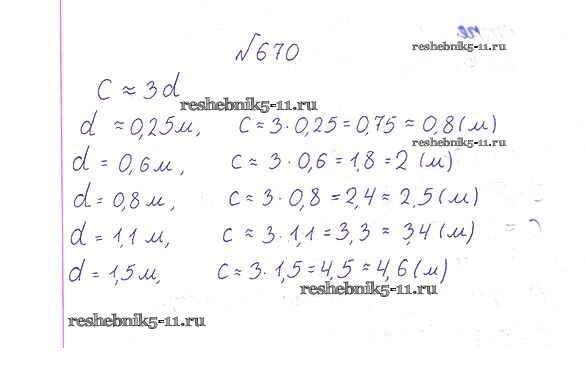 №670
reshebnik5-11.ru
C ≈ 3d
reshebnik5-11.ru
d ≈ 0,25м, C ≈ 3 · 0,25 = 0,75 ≈ 0,8 (м)
reshebnik5-11.ru
d = 0,6 м, C ≈ 3 · 0,6 = 1,8 = 2 (м)
d = 0,8 м, C ≈ 3 · 0,8 = 2,4 ≈ 2,5 (м)
d = 1,1 м, C ≈ 3 · 1,1 = 3,3 ≈ 3,4 (м)
d = 1,5 м, C ≈ 3 · 1,5 = 4,5 ≈ 4,6 (м)
reshebnik5-11.ru
reshebnik5-11.ru